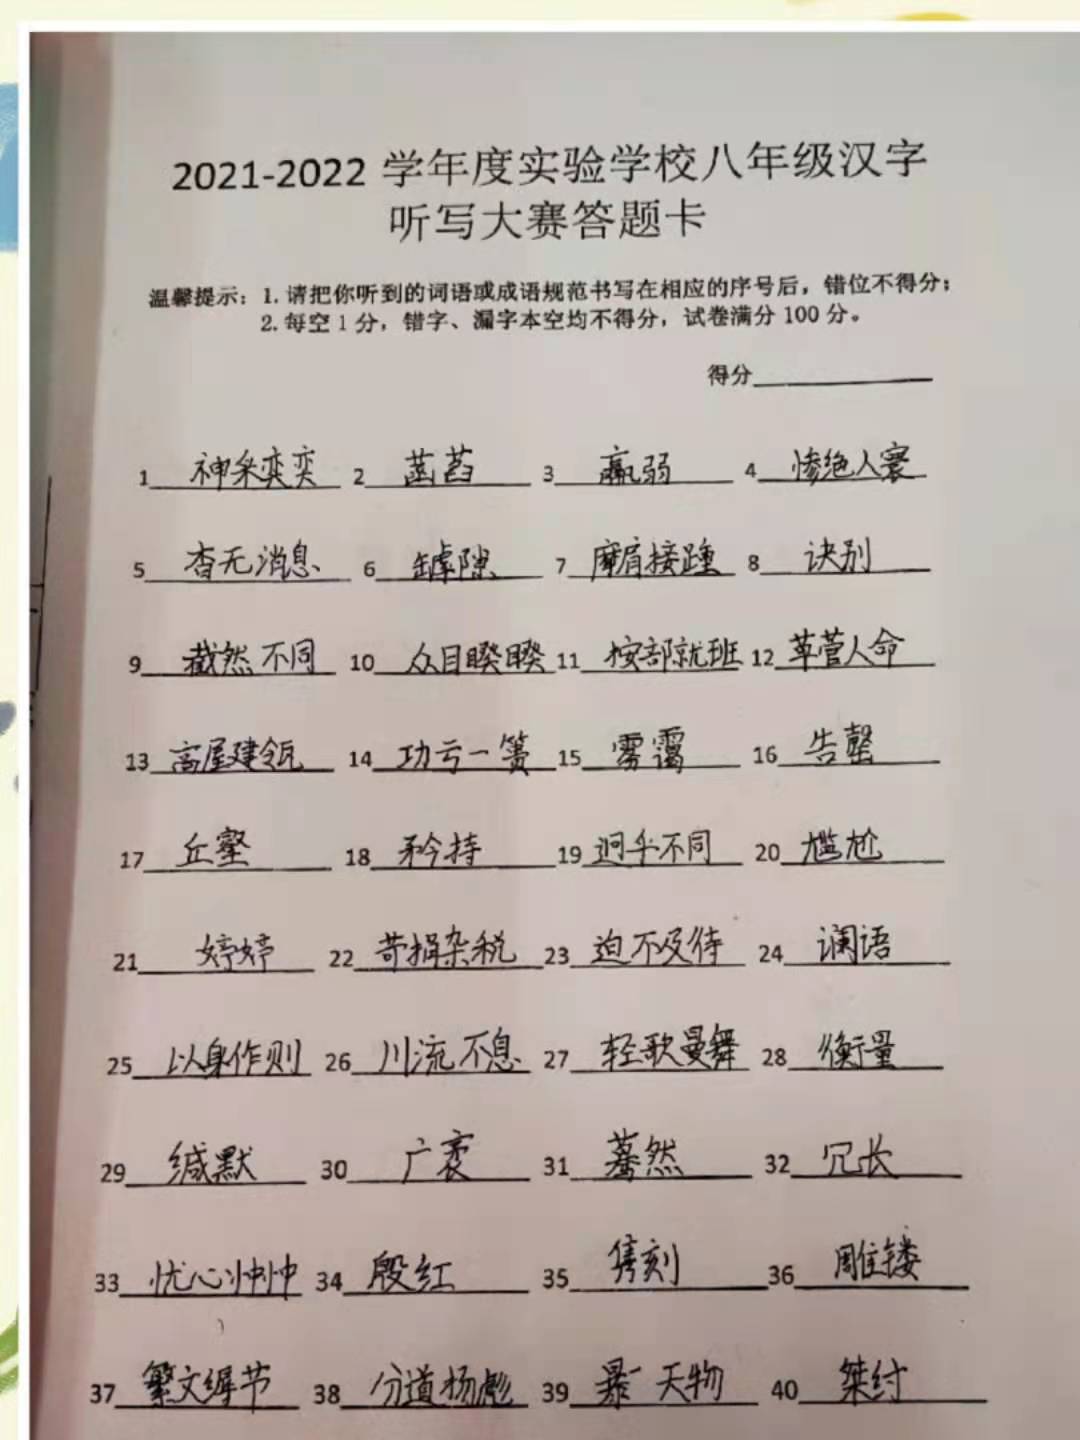 2021-2022 学年度实验学校八年级汉字
听写大赛答题卡
温馨提示：1. 请把你听到的词语或成语规范书写在相应的序号后，错位不得分；
2. 每空 1 分，错字、漏字本空均不得分，试卷满分 100 分。
得分
1 神采奕奕 2 菡萏 3 羸弱 4 惨绝人寰
5 杳无消息 6 罅隙 7 摩肩接踵 8 诀别
9 截然不同 10 众目睽睽 11 按部就班 12 草菅人命
13 高屋建瓴 14 功亏一篑 15 雾霭 16 告罄
17 丘壑 18 矜持 19 迥乎不同 20 尴尬
21 婷婷 22 苛捐杂税 23 迫不及待 24 谰语
25 以身作则 26 川流不息 27 轻歌曼舞 28 衡量
29 缄默 30 广袤 31 蓦然 32 冗长
33 忧心忡忡 34 殷红 35 隽刻 36 雕镂
37 繁文缛节 38 分道扬彪 39 暴 天物 40 桀纣